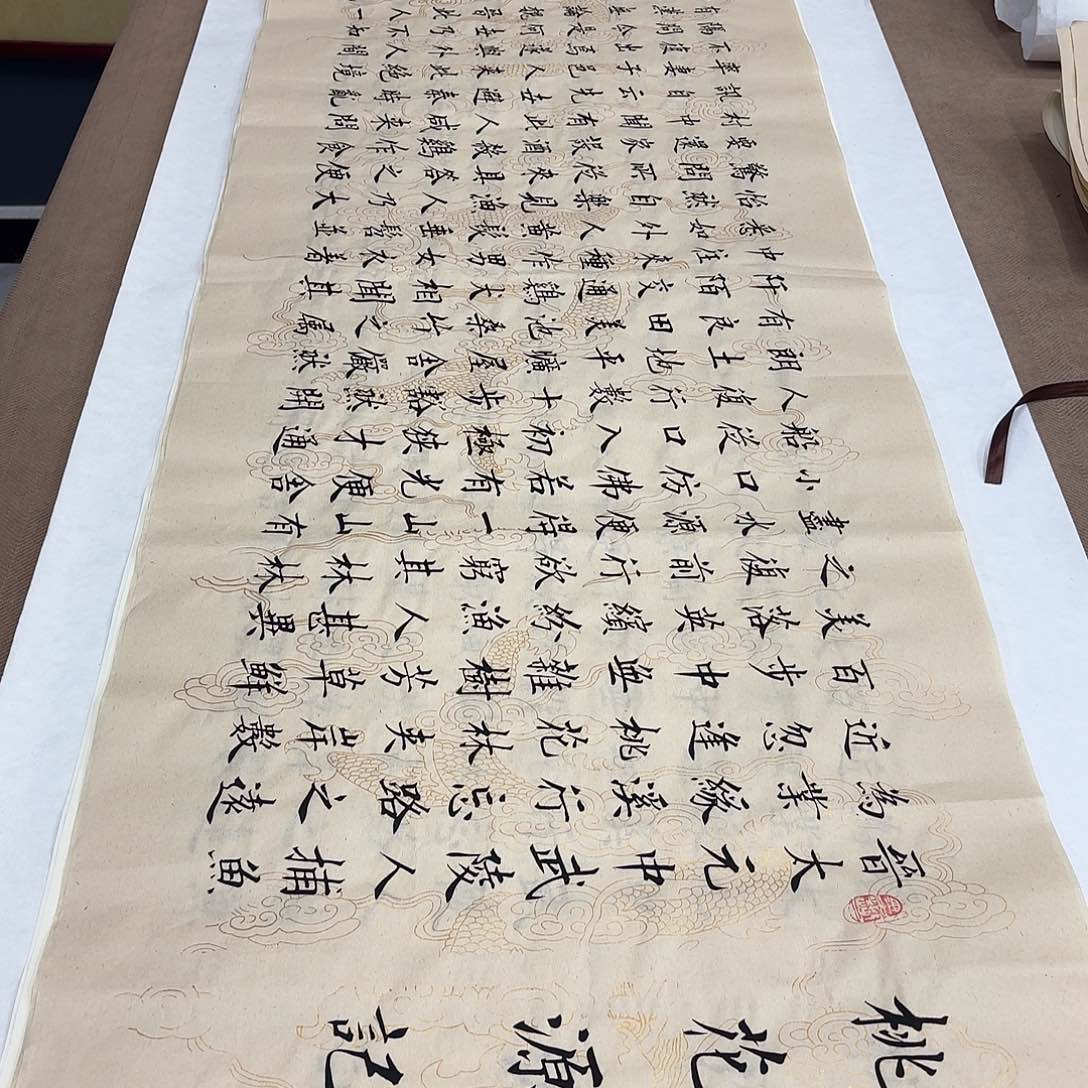 桃花源記
晉太元中武陵人捕魚
為業緣溪行忘路之遠
近忽逢桃花林夾岸數
百步中無雜樹芳草鮮
美落英繽紛漁人甚異
之復前行欲窮其林林
盡水源便得一山山有
小口仿佛若有光便舍
船從口入初極狹才通
人復行數十步豁然開
朗土地平曠屋舍儼然
有良田美池桑竹之属
阡陌交通鷄犬相聞其
中往來種作男女衣着
悉如外人黃髮垂髫並
怡然自樂見漁人乃大
驚問所從來具答之便
要還家設酒殺鷄作食
村中聞有此人咸來問
訊自云先世避秦時亂
率妻子邑人來此絕境
不復出焉遂與外人間
隔問今是何世乃不知